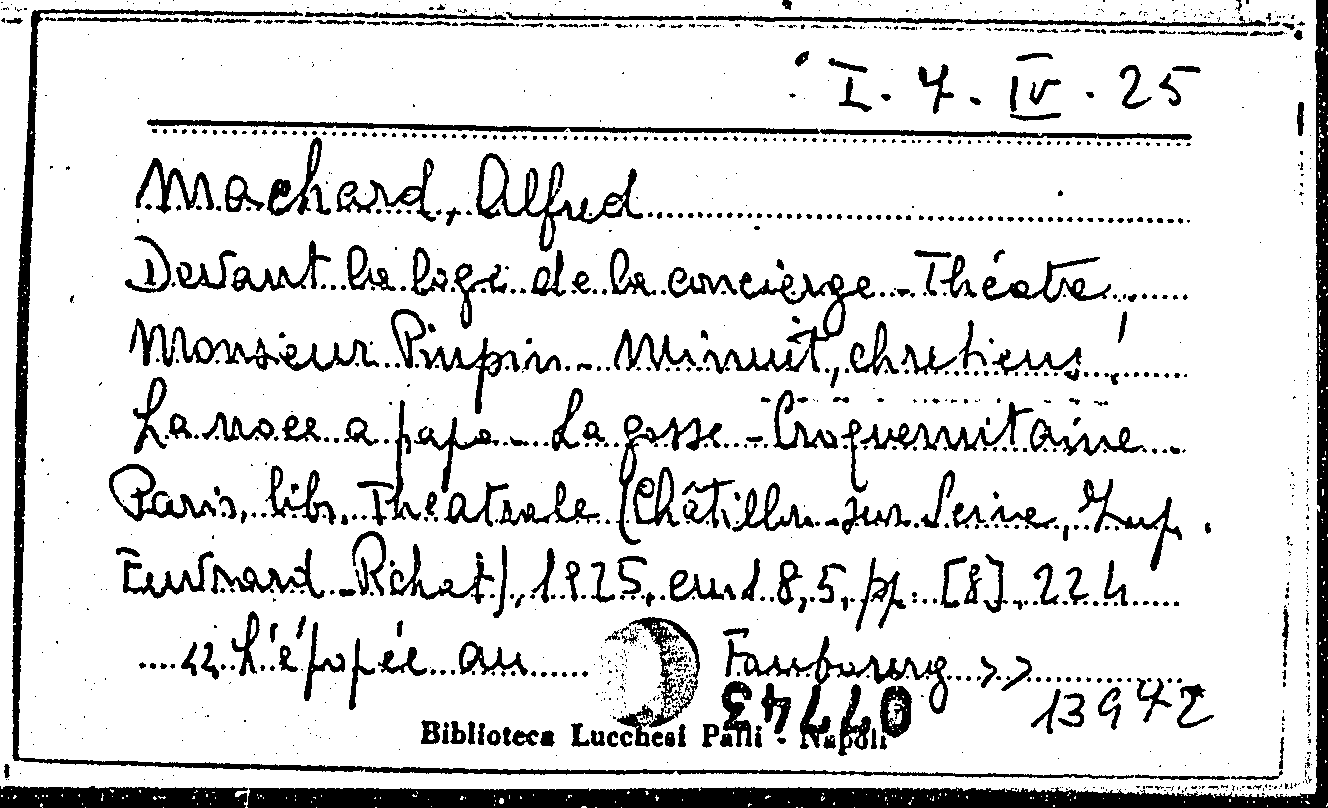 I. 4. IV. 25
Machard, Alfred
Devant la loge de la concierge - Théatre,
Monsieur Pinpin - Minuit, chretiens!
La noce a papa - La gosse - Croquemitaine
Paris, libr. Théatrale (Châtillon-sur Seine, Imp.
Euvrard-Pichat), 1925, cm 18,5, pp. [8], 224
<< L'épopée au Faubourg >>
13942
07743
Biblioteca Lucchesi Palli - Napoli